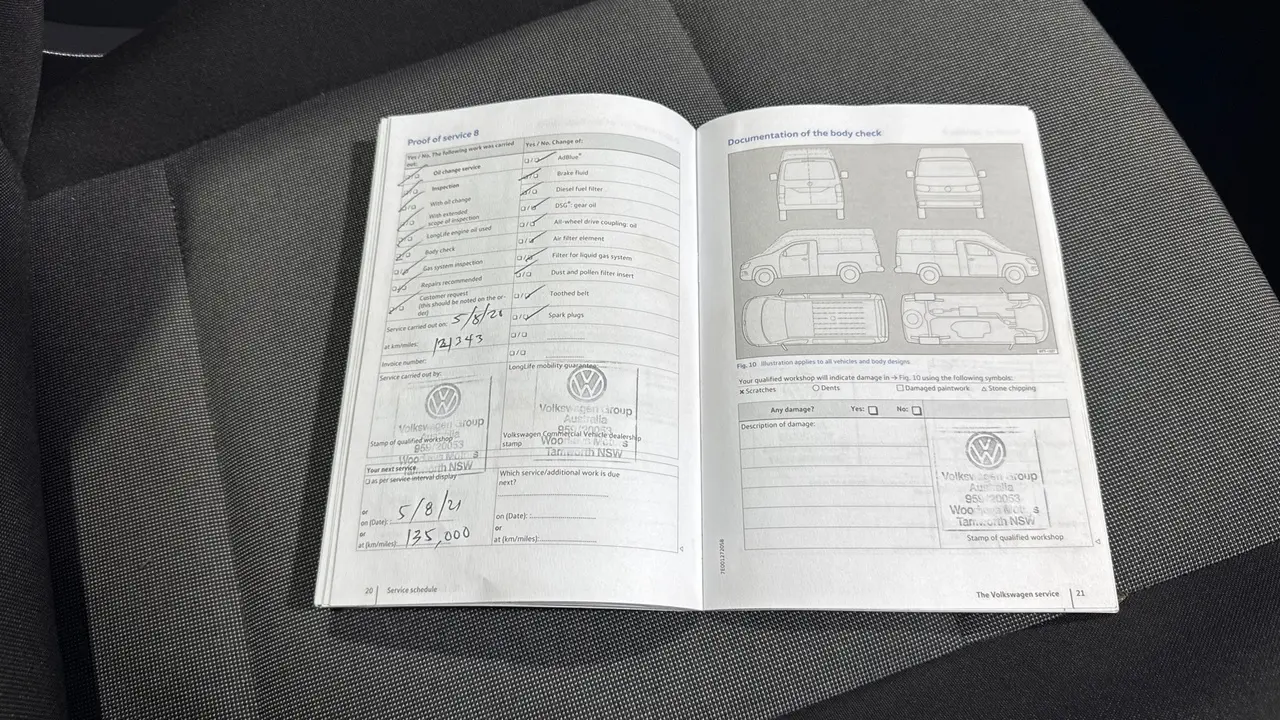 Proof of service 8
Yes / No. The following work was carried out:
Oil change service
Inspection
With oil change
With extended
scope of inspection
LongLife engine oil used
Body check
Gas system inspection
Repairs recommended
Customer request
(this should be noted on the or-
der)
Service carried out on: 5/8/21
at km/miles: 121343
Invoice number:
Service carried out by:
Volkswagen Group
Australia
959/20053
Stamp of qualified workshop
Woo
Tamworth NSW
Your next service
as per service interval display
or
on (Date): 5/8/21
or
at (km/miles): 135,000
Yes / No. Change of:
AdBlue®
Brake fluid
Diesel fuel filter
DSG®: gear oil
All-wheel drive coupling: oil
Air filter element
Filter for liquid gas system
Dust and pollen filter insert
Toothed belt
Spark plugs
LongLife mobility guarantee:
Volkswagen Group
Australia
959/20053
Volkswagen Commercial Vehicle dealership
stamp
Tamworth NSW
Which service/additional work is due
next?
on (Date):
or
at (km/miles):
20 Service schedule
Documentation of the body check
Fig. 10 Illustration applies to all vehicles and body designs.
Your qualified workshop will indicate damage in → Fig. 10 using the following symbols:
× Scratches ○ Dents □ Damaged paintwork △ Stone chipping
Any damage? Yes: □ No: □
Description of damage:
Volkswagen Group
Australia
959/20053
Tamworth NSW
Stamp of qualified workshop
7E0012720SB
The Volkswagen service 21